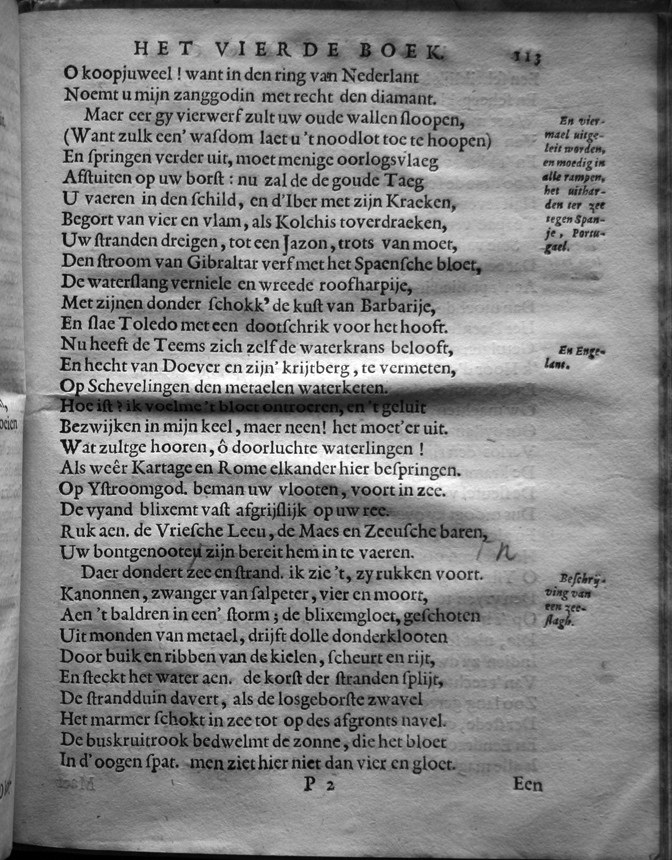 HET VIERDE BOEK. 113
O koopjuweel ! want in den ring van Nederlant
Noemt u mijn zanggodin met recht den diamant.
Maer eer gy vierwerf zult uw oude wallen ſloopen,
(Want zulk een' waſdom laet u 't noodlot toe te hoopen)
En ſpringen verder uit, moet menige oorlogsvlaeg
Afſtuiten op uw borſt : nu zal de de goude Taeg
U vaeren in den ſchild, en d'Iber met zijn Kraeken,
Begort van vier en vlam, als Kolchis toverdraeken,
Uw ſtranden dreigen, tot een Jazon, trots van moet,
Den ſtroom van Gibraltar verf met het Spaenſche bloet,
De waterſlang verniele en wreede roofharpije,
Met zijnen donder ſchokk' de kuſt van Barbarije,
En ſlae Toledo met een dootſchrik voor het hooft.
Nu heeft de Teems zich zelf de waterkrans belooft,
En hecht van Doever en zijn' krijtberg, te vermeten,
Op Schevelingen den metaelen waterketen.
Hoe iſt ? ik voelme 't bloet ontroeren, en 't geluit
Bezwijken in mijn keel, maer neen! het moet'er uit.
Wat zultge hooren, ô doorluchte waterlingen !
Als weêr Kartage en Rome elkander hier beſpringen.
Op Yſtroomgod. beman uw vlooten, voort in zee.
De vyand blixemt vaſt afgrijſlijk op uw ree.
Ruk aen. de Vrieſche Leeu, de Maes en Zeeuſche baren,
Uw bontgenooteu zijn bereit hem in te vaeren. n
Daer dondert zee en ſtrand. ik zie 't, zy rukken voort.
Kanonnen, zwanger van ſalpeter, vier en moort,
Aen 't baldren in een' ſtorm ; de blixemgloet, geſchoten
Uit monden van metael, drijft dolle donderklooten
Door buik en ribben van de kielen, ſcheurt en rijt,
En ſteckt het water aen. de korſt der ſtranden ſplijt,
De ſtrandduin davert, als de losgeborſte zwavel
Het marmer ſchokt in zee tot op des afgronts navel.
De buskruitrook bedwelmt de zonne, die het bloet
In d' oogen ſpat. men ziet hier niet dan vier en gloet.
P 2 Een
En vier-
mael uitge-
leit worden,
en moedig in
alle rampen,
het uithar-
den ter zee
tegen Span-
je, Portu-
gael.
En Enge-
lant.
Beſchrij-
ving van
een zee-
ſlagh.